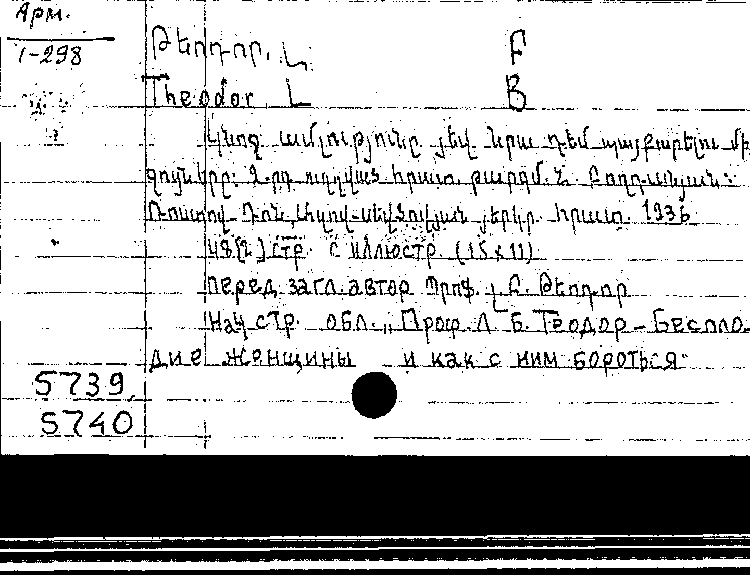 Арм.
1-298
Թեոդոր, Լ. F
Theodor L B
Կնոջ ամլությունը յեվ նրա դեմ պայքարելու մի
ջոցները. 2-րդ ուղղված հրատ. թարգմ. Հ.
Ռոստով-Դոն, Ազով-սեվծովյան յերկր. հրատ. 1936
48[2] стр. с иллюстр. (15x11)
перед загл. автор Պրոֆ. Լ Բ. Թեոդոր
На стр. обл. „Проф Л Б. Теодор – Беспло
дие женщины и как с ним бороться
5739,
5740